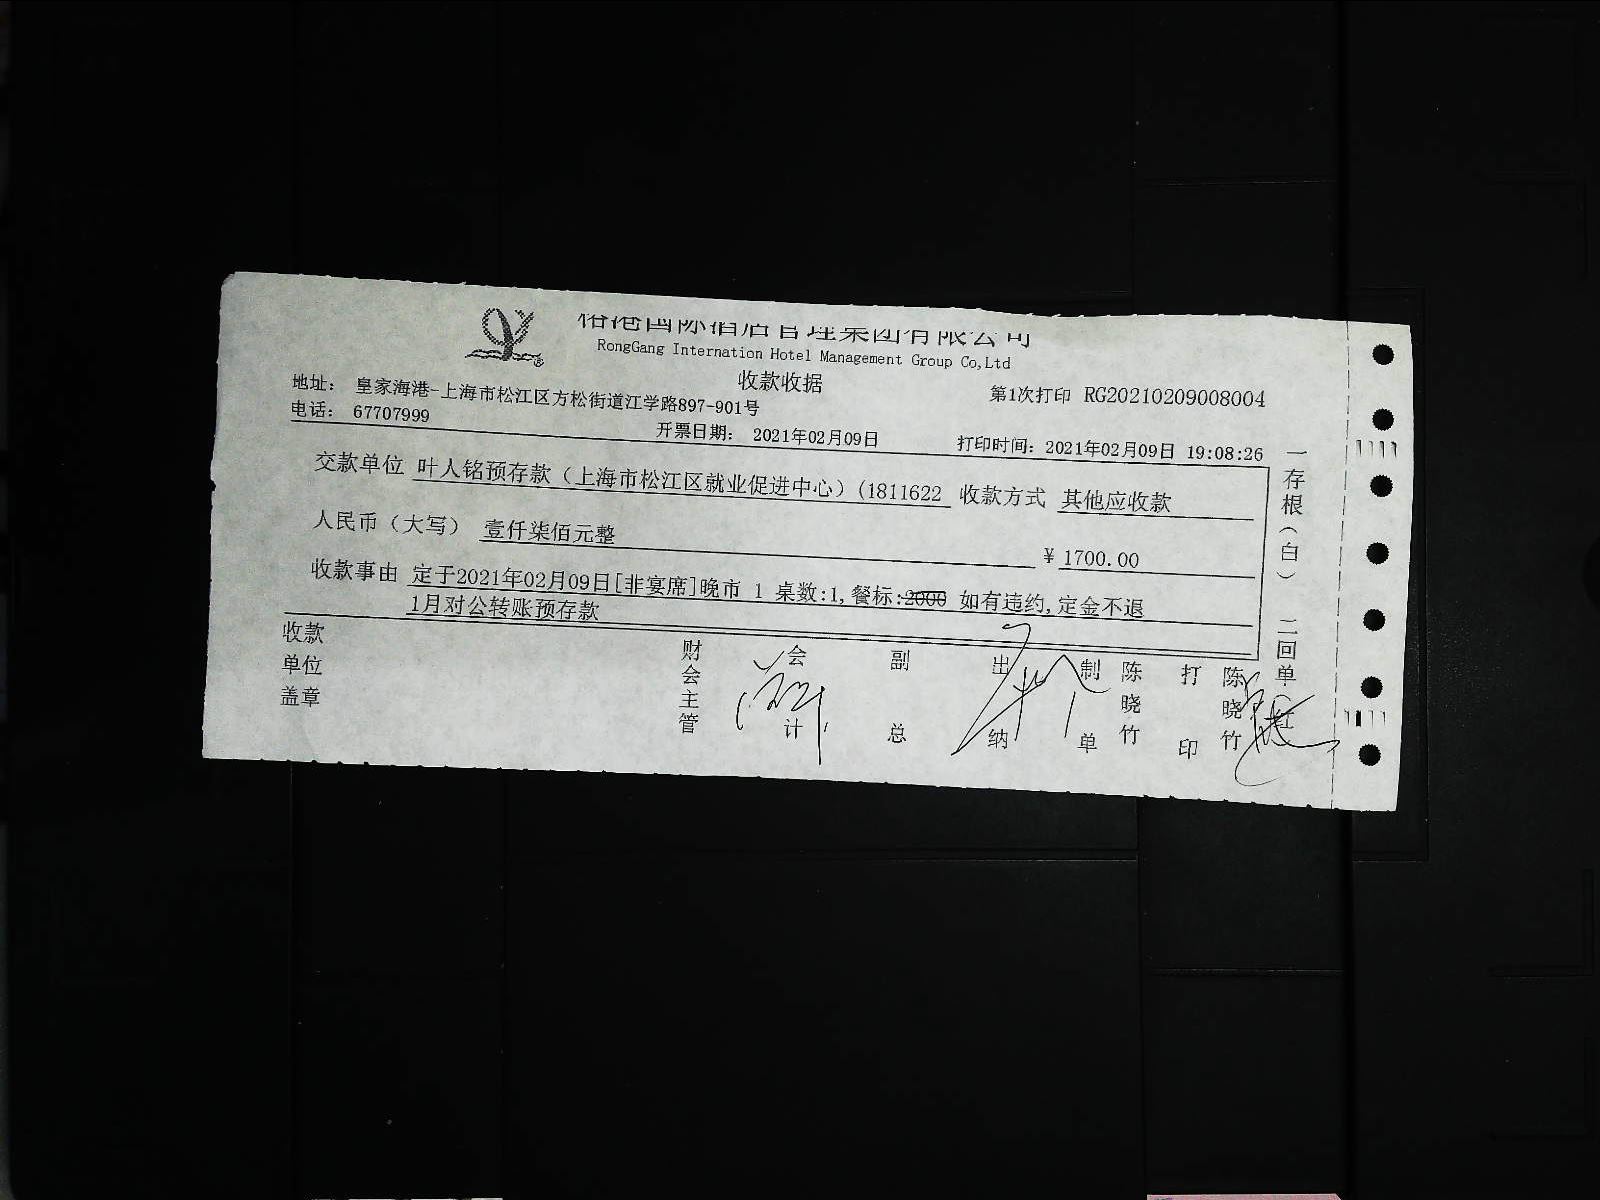 港国际酒店管理集团有限公司
RongGang Internation Hotel Management Group Co,Ltd
收款收据
地址： 皇家海港-上海市松江区方松街道江学路897-901号
第1次打印 RG20210209008004
电话： 67707999
开票日期： 2021年02月09日 打印时间：2021年02月09日 19:08:26
交款单位 叶人铭预存款（上海市松江区就业促进中心）(1811622 收款方式 其他应收款
人民币（大写） 壹仟柒佰元整 ¥ 1700.00
收款事由 定于2021年02月09日[非宴席]晚市 1 桌数:1,餐标:2000 如有违约,定金不退
1月对公转账预存款
收款单位盖章
财会主管
会计
副总
出纳
制单
陈晓竹
打印
陈晓竹
一存根（白） 二回单 红